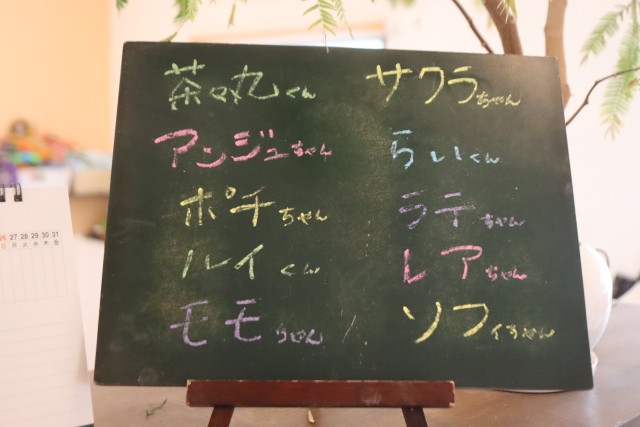 茶々丸くん サクラちゃん
アンジュちゃん らいくん
ポチちゃん ラテちゃん
ルイくん レアちゃん
モモちゃん ソフィちゃん
26 27 28 29 30 31